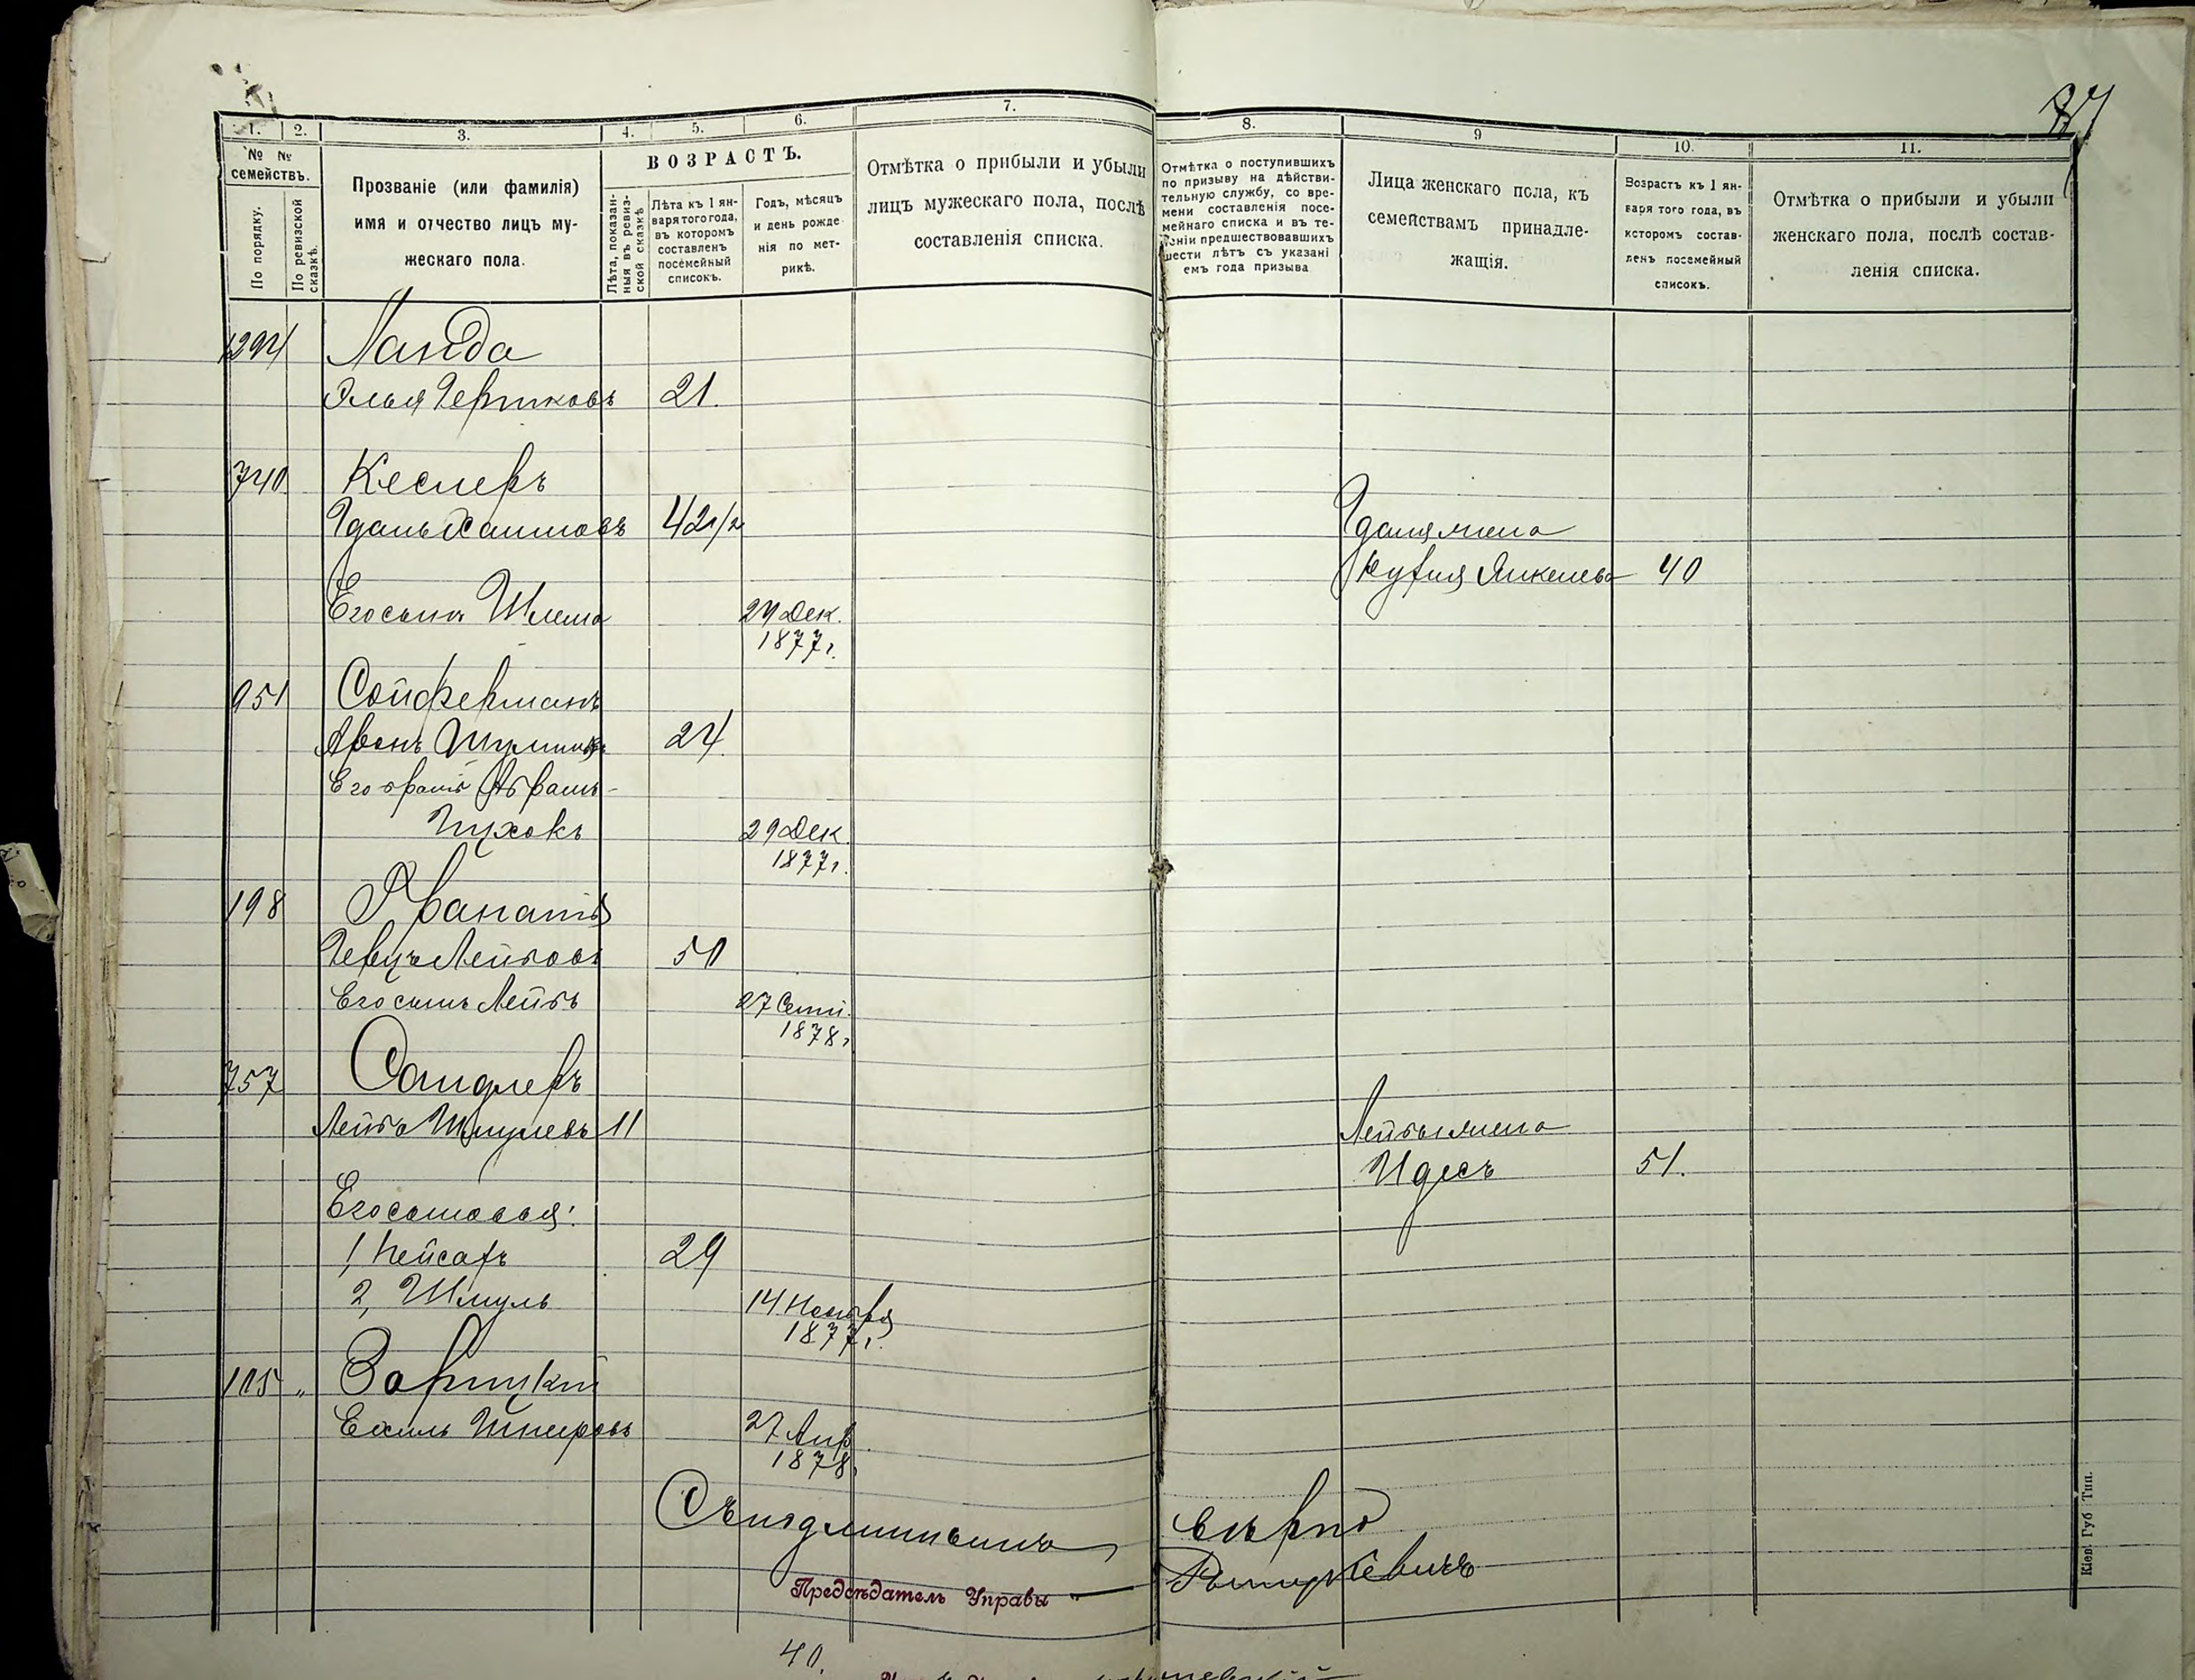 37
1.
2.
3.
4.
5.
6.
7.
№ №
семействъ.
По порядку.
По ревизской
сказкѣ.
Прозваніе (или фамилія)
имя и отчество лицъ му-
жескаго пола.
ВОЗРАСТЪ.
Лѣта, показан-
ныя въ ревиз-
ской сказкѣ
Лѣта къ 1 ян-
варя того года,
въ которомъ
составленъ
посемейный
списокъ.
Годъ, мѣсяцъ
и день рожде
нія по мет-
рикѣ.
Отмѣтка о прибыли и убыли
лицъ мужескаго пола, послѣ
составленія списка.
8.
9
10.
11.
Отмѣтка о поступившихъ
по призыву на дѣйстви-
тельную службу, со вре-
мени составленія посе-
мейнаго списка и въ те-
ченіи предшествовавшихъ
шести лѣтъ съ указані
емъ года призыва
Лица женскаго пола, къ
семействамъ принадле-
жащія.
Возрастъ къ 1 ян-
варя того года, въ
которомъ состав-
ленъ посемейный
списокъ.
Отмѣтка о прибыли и убыли
женскаго пола, послѣ состав-
ленія списка.
1294 Ланда
Элья Гершковъ 21.
740 Кеслеръ
Гдаль Хаимовъ 42 1/2 Гдаля жена
Янкелева 40
Его сынъ Шлема 29 Дек.
1877 г.
951 Сойферманъ
Аронъ 24.
Его братъ Абрамъ-
29 Дек.
1877 г.
198
Герцъ Лейбовъ 50
Его сынъ Лейбъ 27 Сент.
1878 г.
757 Сандлеръ
Лейба Шмулевъ 11 Лейбы жена
Идесъ 51.
Его сыновья:
1, Пейсахъ 29
2, Шмуль 14 Ноября
1877 г.
105 " Зарицкій
Ехиль 27 Апр.
1878 г.
Съ подлиннымъ вѣрно
Предсѣдатель Управы
40.
Кіев. Губ Тип.